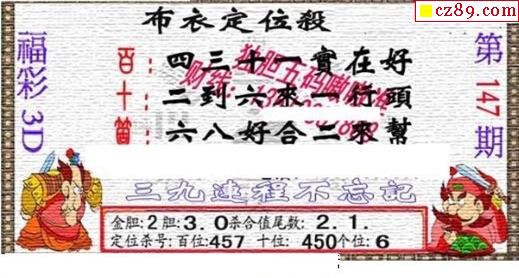 cz89.com
布衣定位殺
福彩3D
第147期
百：四三十一實在好
十：二到六來一行頭
箇：六八好合二來幫
三九連程不忘記
金胆:2胆:3.0杀合值尾数:2.1.
定位杀号:百位:457 十位:450个位:6